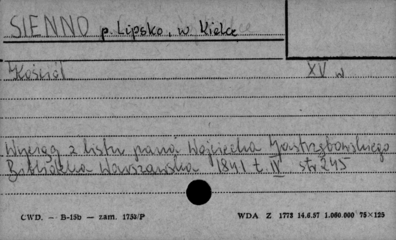 SIENNO p. Lipsko, w. Kielce
Kościół XV w
Wyciąg z listu pana Wojciecha Jastrzębowskiego
Biblioteka Warszawska 1841 t. IV str 245
CWD. - B-15b - zam. 1753/P WDA Z 1773 14.6.57 1.060.000 75×125